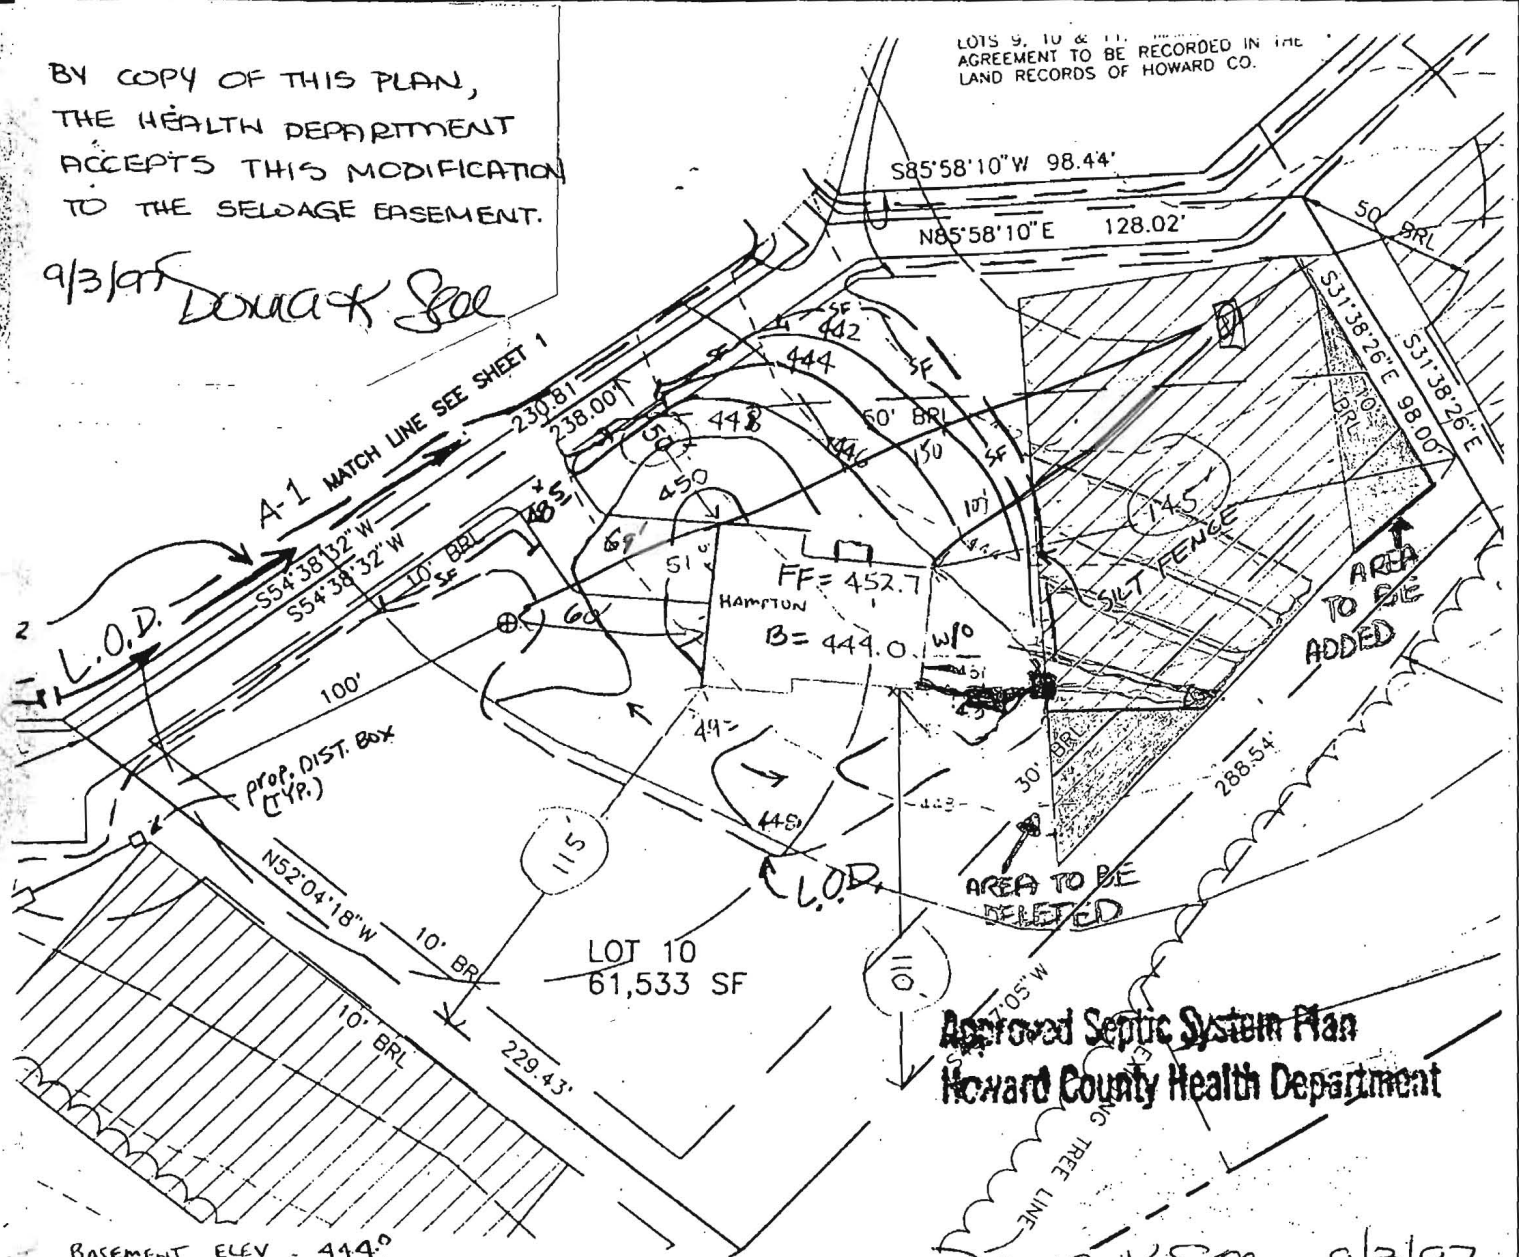 BY COPY OF THIS PLAN,
THE HEALTH DEPARTMENT
ACCEPTS THIS MODIFICATION
TO THE SEWAGE EASEMENT.
9/3/97
LOTS 9, 10 & 11.
AGREEMENT TO BE RECORDED IN THE
LAND RECORDS OF HOWARD CO.
S85°58'10"W 98.44'
N85°58'10"E 128.02'
50' BRL
S31°38'26"E 98.00'
S31°38'26"E
10' BRL
A-1 MATCH LINE SEE SHEET 1
230.81
238.00'
SF
442
SF
444
SF
SF
448
50' BRL
446
150
SF
450
50
145'
SILT FENCE
S54°38'32"W
S54°38'32"W
10' BRL
SF
L.O.D.
2
69'
51
60'
FF= 452.7
HAMPTON
B= 444.0
W/O
AREA
TO BE
ADDED
100'
prop. DIST. BOX
(TYP.)
448
448
L.O.D.
30' BRL
288.54'
AREA TO BE
DELETED
115'
110'
N52°04'18"W
10' BRL
10' BRL
229.43'
LOT 10
61,533 SF
Approved Septic System Plan
Howard County Health Department
TREE LINE
BASEMENT ELEV. 444.0
9/3/97